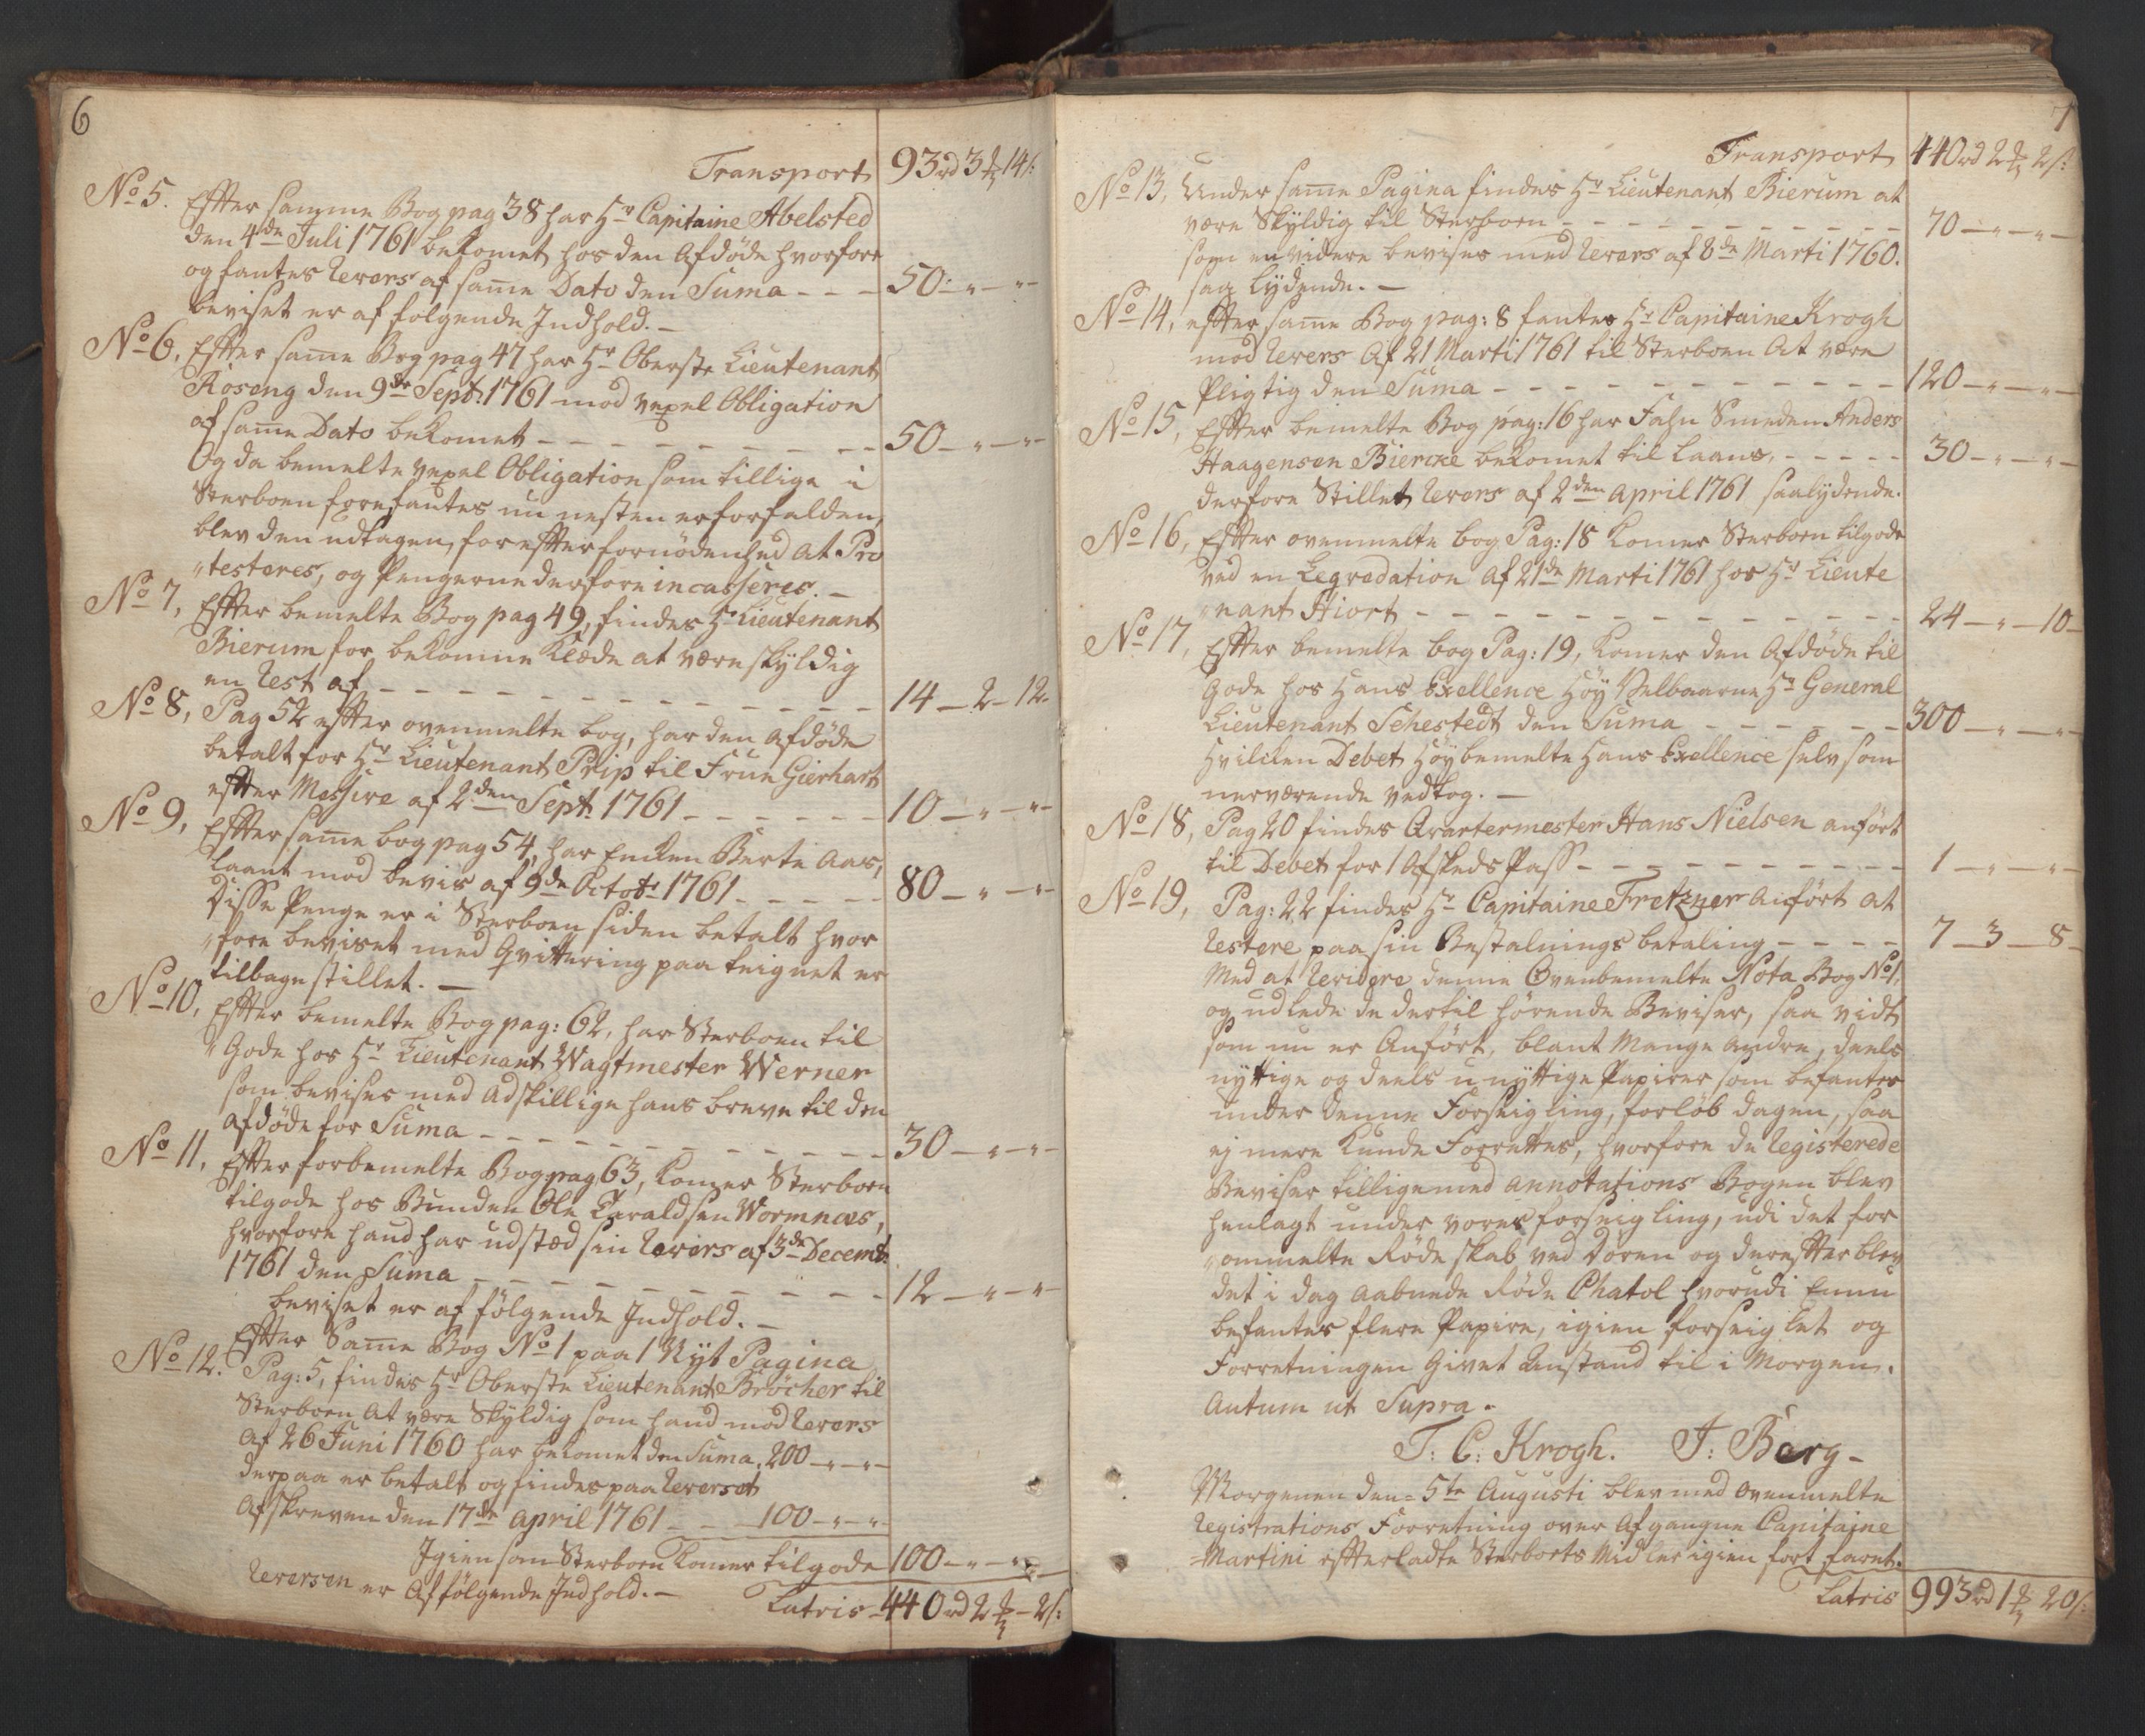 6
Transport 93rd 3 14s:
No 5. Effter samme Bog pag 38 har Hr Capitaine Abelsted
den 4de Juli 1761 bekomet hos den Afdöde hvorfore
og fantes Revers af same Dato den Suma - - - 50 - " - " -
beviset er af folgende Indhold. -
No 6, Effter same Bog pag 47 har Hr Oberste Lieutenant
Roseng den 9de Sept: 1761 mod vexel Obligation
af same Dato bekomet - - - - - - - - - 50 - " - " -
Og da bemelte vexel Obligation som tillige i
Sterboen forefantes nu nesten er forfalden,
blev den udtagen, for effter fornödenhed at Pro
"testeres, og Pengerne derfore incasseres. -
No 7, Effter bemelte Bog pag 49, findes Hr Lieutenant
Bierum for bekomne Klæde at være skÿldig
en Rest af - - - - - - - - - - - 14 - 2 - 12 -
No 8, Pag 52 effter ovenmelte bog, har den Afdöde
betalt for Hr Lieutenant Prip til Frue Gierhart
effter Missive af 2den Sept: 1761 - - - - - - 10 - " - " -
No 9, Effter same bog pag 54, har Encken Berte Aas,
laant mod bevis af 9de Octobr 1761 - - - - - 80 - " - " -
Disse Penge er i Sterboen siden betalt hvor
"fore beviset med Qvittering paa teignet er
tilbage stillet. -
No 10, Effter bemelte Bog pag: 62, har Sterboen til
"Gode hos Hr Lieutenant Wagtmester Werner
som bevises med Adskillige hans breve til den
Afdöde for Suma - - - - - - - - - - 30 - " - " -
No 11, Effter forbemelte Bog pag 63, komer Sterboen
tilgode hos Bunden Ole Taraldsen Wormnæs,
hvorfore hand har udstæd sin Revers af 3de Decembr
1761 den Suma - - - - - - - - - - 12 - " - " -
beviset er af fölgende Indhold. -
Effter Same Bog No 1 paa 1 Nÿt Pagina
No 12. Pag: 5, findes Hr Oberste Lieutenant Bröcher til
Sterboen at være Skÿldig som hand mod Revers
af 26 Juni 1760 har bekomet den Suma. 200 - " - " -
derpaa er betalt og findes paa Reverset
Afskreven den 17de April 1761 - - 100 - " - " -
Igien som Sterboen komer tilgode 100 - " - " -
Reversen er af fölgende Indhold. -
Latris 440rd 2 - 2s:
7
Transport 440rd 2 2s:
No 13, Under same Pagina findes Hr Lieutenant Bierum at
være Skÿldig til Sterboen - - - - - - - - - 70 - " - " -
som en videre bevises med Revers af 8de Marti 1760.
saa lÿdende. -
No 14, effter same Bog pag: 8 fantes Hr Capitaine Krogh
mod Revers af 21 Marti 1761 til Sterboen at være
Pligtig den Suma - - - - - - - - - - - 120 - " - " -
No 15, Effter bemelte Bog pag: 16 har Fahn Smeden Anders
Haagensen Biercke bekomet til Laans, - - - - - 30 - " - " -
derfore Stillet Revers af 2den April 1761 saalÿdende.
No 16, Effter ovenmelte bog Pag: 18 komer Sterboen tilgode
ved en Legredation af 21de Marti 1761 hos Hr Lieute
"nant Hiort - - - - - - - - - - - - 24 - " - 10 -
No 17, Effter bemelte bog Pag: 19, komer den Afdöde til
Gode hos Hans Exellence Höÿ Velbaarne Hr General
Lieutenant Schestedt den Suma - - - - - - 300 - " - " -
Hvilcken Debet Höÿbemelte Hans Exellence selv som
nerværende vedtog. -
No 18, Pag 20 findes Qvartermester Hans Nielsen anfört
til Debet for 1 Afskeds Pass - - - - - - - - 1 - " - " -
No 19, Pag: 22 findes Hr Capitaine Fretzner anfört at
Restere paa sin Bestalnings betaling - - - - 7 - 3 - 8 -
Med at Revidere denne Ovenbemelte Nota Bog No 1,
og udlede de dertil hörende Beviser, saa vidt
som nu er Anfört, blant Mange andre, deels
nÿttige og deels unÿttige Papirer som befantes
under denne Forseigling, forlöb dagen, saa
ej mere kunde Forrettes, hvorfore de Registerede
Beviser tilligemed annotations Bogen blev
henlagt under vores forseigling, udi det for
"ommelte Röde skab ved Doren og dereffter blev
det i dag aabnede Röde Chatol hvorudi Ennu
befantes flere Papire, igien forseiglet og
Forretningen Givet Anstand til i Morgen.
Autum ut Supra.
T: C: Krogh. J: Berg -
Morgenen den 5te Augusti blev med Ovenmelte
Registrations Forretning over Afgangne Capitaine
Martini effterladte Sterboets Midler igien fortfaret.
Latris 993rd 1 20s: